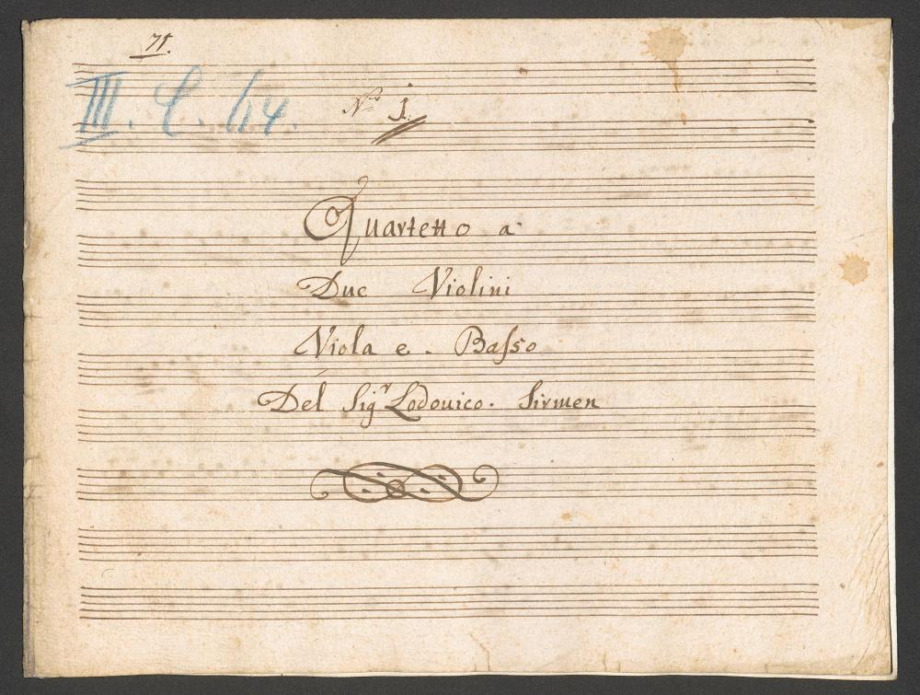 71.
III. C. 64.
No 1.
Quartetto a
Due Violini
Viola e. Baſso
Del Sigr Lodouico. Sirmen